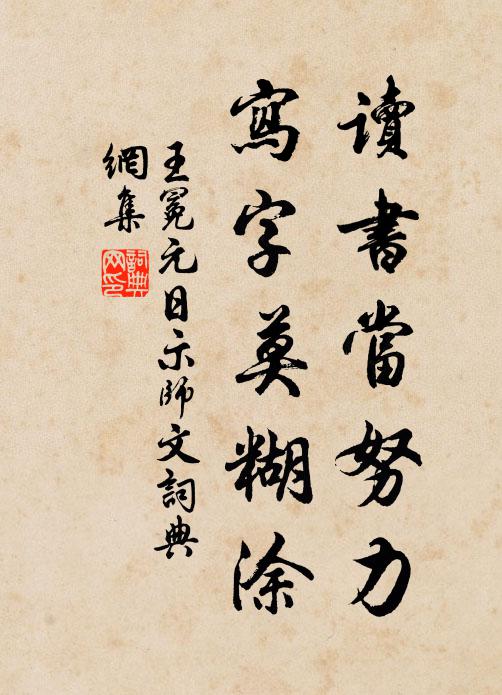 读書當努力
寫字莫糊涂
王冕元日示師文詞典
網集
詞典
网印